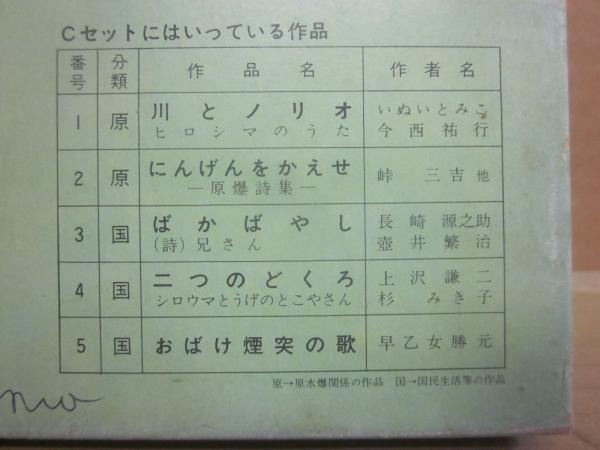 Cセットにはいっている作品
番号 分類 作品名 作者名
1 原 川とノリオ いぬいとみこ
ヒロシマのうた 今西祐行
2 原 にんげんをかえせ 峠三吉他
―原爆詩集―
3 国 ばかばやし 長崎源之助
(詩)兄さん 壺井繁治
4 国 二つのどくろ 上沢謙二
シロウマとうげのとこやさん 杉みき子
5 国 おばけ煙突の歌 早乙女勝元
原→原水爆関係の作品 国→国民生活等の作品